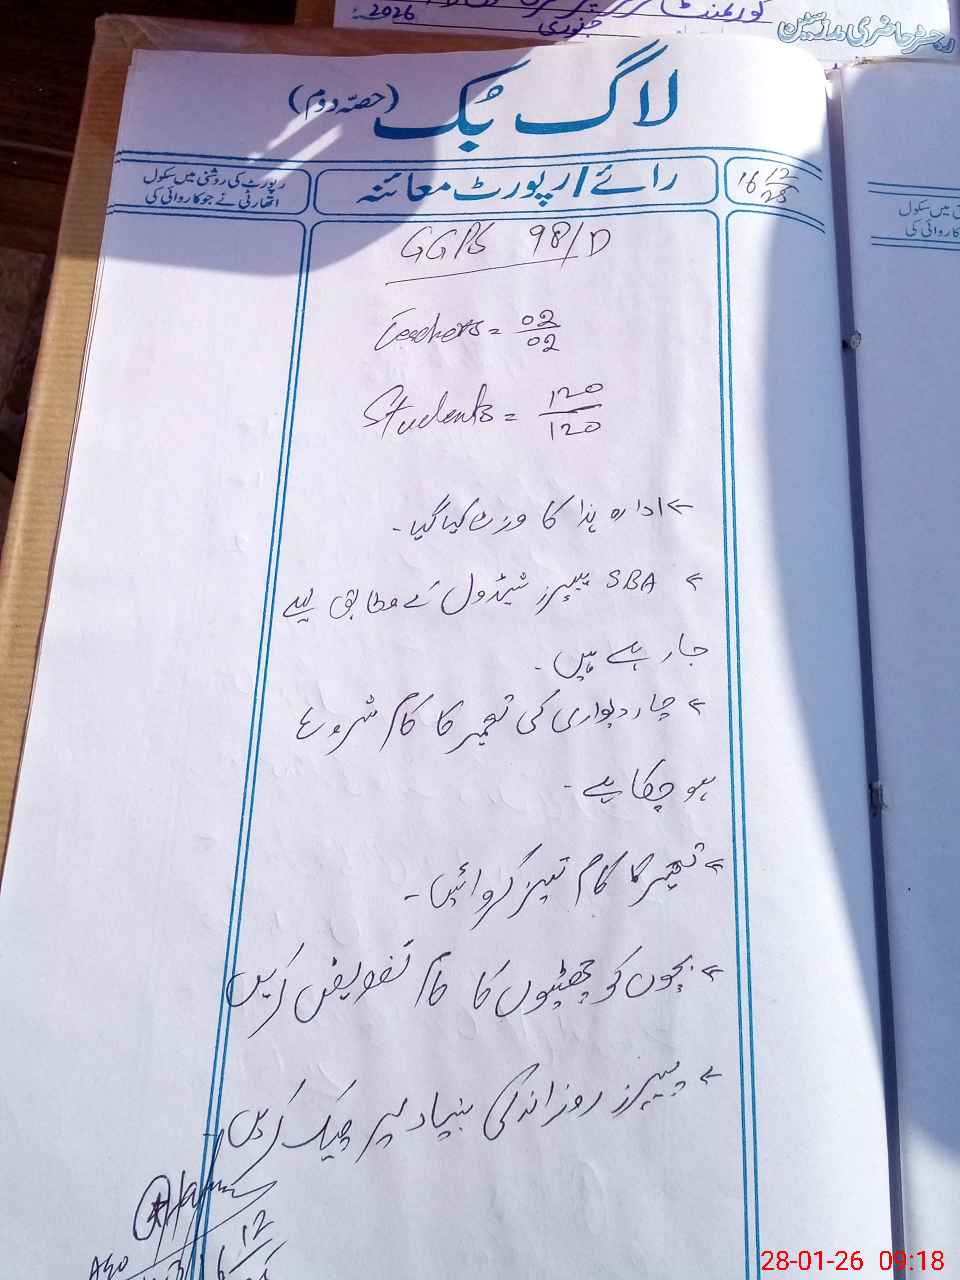 گورنمنٹ
2026
جنوری
رجسٹر حاضری مدرسین
لاگ بُک (حصّہ دوم)
رپورٹ کی روشنی میں سکول
اتھارٹی نے جو کاروائی کی
رائے/رپورٹ معائنہ
16 12
25
GGPS 98/D
Teachers = 02/02
Students = 120/120
> ادارہ ہذا کا وزٹ کیا گیا۔
> SBA پیپرز شیڈول کے مطابق لیے
جا رہے ہیں۔
> چار دیواری کی تعمیر کا کام شروع
ہو چکا ہے۔
> تعمیر کا کام تیز کروائیں۔
> بچوں کو چھٹیوں کا کام تفویض کریں
> پیپرز روزانہ کی بنیاد پر چیک کریں
AEO
16 12
میں سکول
کاروائی کی
28-01-26 09:18